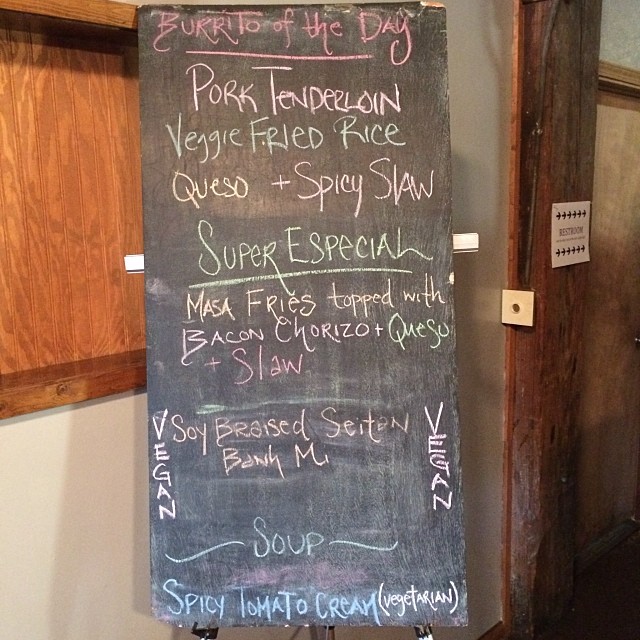 BURRITO of the DAY
PORK TENDERLOIN
Veggie FRIED RICE
QUESO + Spicy SLAW
SUPER ESPECIAL
MASA FRIES topped with
BACON CHORIZO + QUESO
+ SLAW
VEGAN
Soy Braised Seitan
Banh Mi
VEGAN
SOUP
SPICY TOMATO CREAM (vegetarian)
RESTROOM